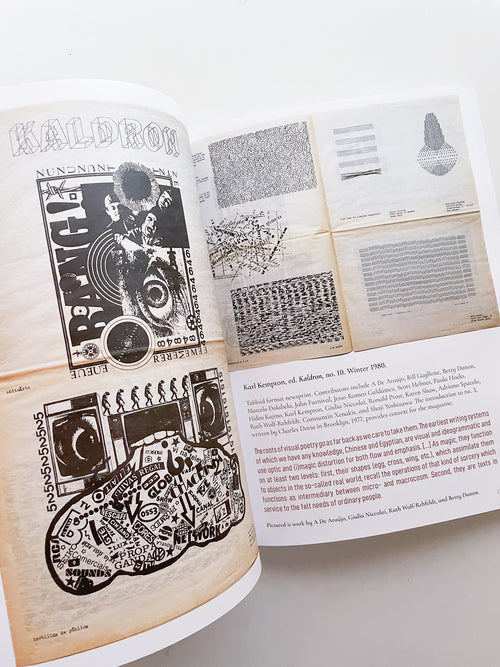 KALDRON
BANG!
obituário
SOUNDS
NETWORK
PROPA
GANDA
REGAE
pastilha de pública
Karl Kempton, ed. Kaldron, no. 10. Winter 1980.
Tabloid format newsprint. Contributors include A De Araújo, Bill Gaglione, Betty Danon,
Marcelo Dolabela, John Furnival, Jesus Romeo Galdámez, Scott Helmes, Paula Hocks,
Hiloko Kajino, Karl Kempton, Giulia Niccolai, Ronald Prost, Karen Shaw, Adriano Spatola,
Ruth Wolf-Rehfeldt, Constantin Xenakis, and Shoji Yoshizawa. The introduction to no. 1,
written by Charles Doria in Brooklyn, 1977, provides context for the magazine.
The roots of visual poetry go as far back as we care to take them. The earliest writing systems
of which we have any knowledge, Chinese and Egyptian, are visual and ideogrammatic and
use optic and (i)magic distortion for both flow and emphasis. [...] As magic, they function
on at least two levels: first, their shapes (egg, cross, wing, etc.), which assimilated them
to objects in the so-called real world, recall the operations of that kind of sorcery which
functions as intermediary between micro- and macrocosm. Second, they are texts in
service to the felt needs of ordinary people.
Pictured is work by A De Araújo, Giulia Niccolai, Ruth Wolf-Rehfeldt, and Betty Danon.